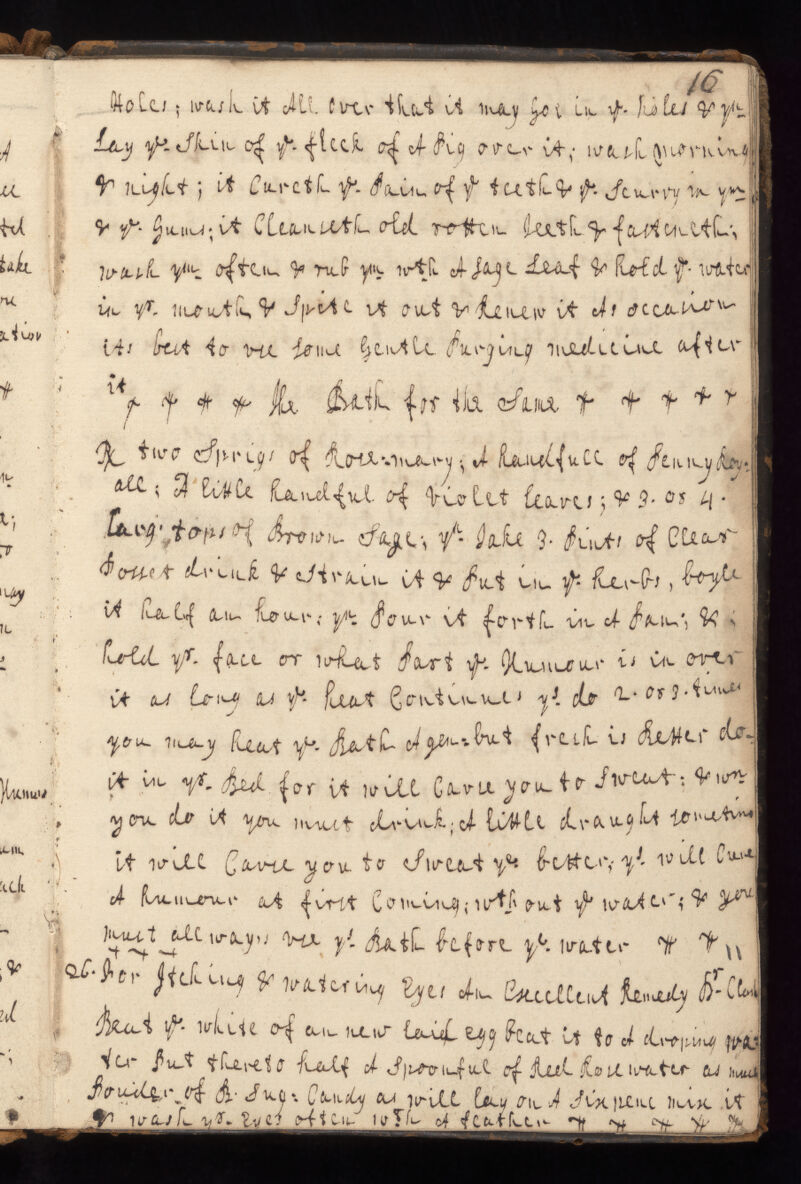 16
Holes; wash it All over that it may Goe in ye. holes & yn.
Lay ye. Skin of ye. fleck of A Pig over it; wash morning
& night; it Cureth ye. Pain of ye teeth & ye. Scurvy in ym.
& ye. Gums; it Cleanseth old rotten teeth & fasteneth;
wash ym. often & rub ym. wth A sage Leaf & hold ye. water
in yr. mouth & Spite it out & Renew it As occasion
its best to use some Gentle Purging medicine after
it The Bath for the Same
℞ two Sprigs of Rose-mary; A handfull of Penny Roy:
all; A little handful of violet leaves; & 3. or 4.
Larg: tops of Brown Sage; yn. Take 3. Pints of Clear
Posset drink & Strain it & Put in ye. herbs, boyle
it half an hour: yn. Pour it forth in A Pan; &
hold yr. face or what Part ye. Humour is in over
it as long as ye. heat Continues ys. do 2. or 3. times
you may heat ye. Bath Agen: but fresh is Better do
it in yr. Bed for it will Cause you to Sweat: & wn.
you do it you must drink; A little draught sometims
it will Cause you to Sweat ye. better; ys. will Cure
A humour at first Coming; wth out ye water; & you
must all ways use ys. Bath before ye. water
26. For Itching & watering Eyes An Excellent Remedy Dr. Clark
Beat ye. white of an new laid egg beat it to A droping wa:
ter Put thereto half A Spoonful of Red Rose water as much
Pouder of B. Sug: Candy as will lay on A Sixpenc mix it
& wash yr. Eyes often wth A feather
A
take
ation
to
may
Humor
&